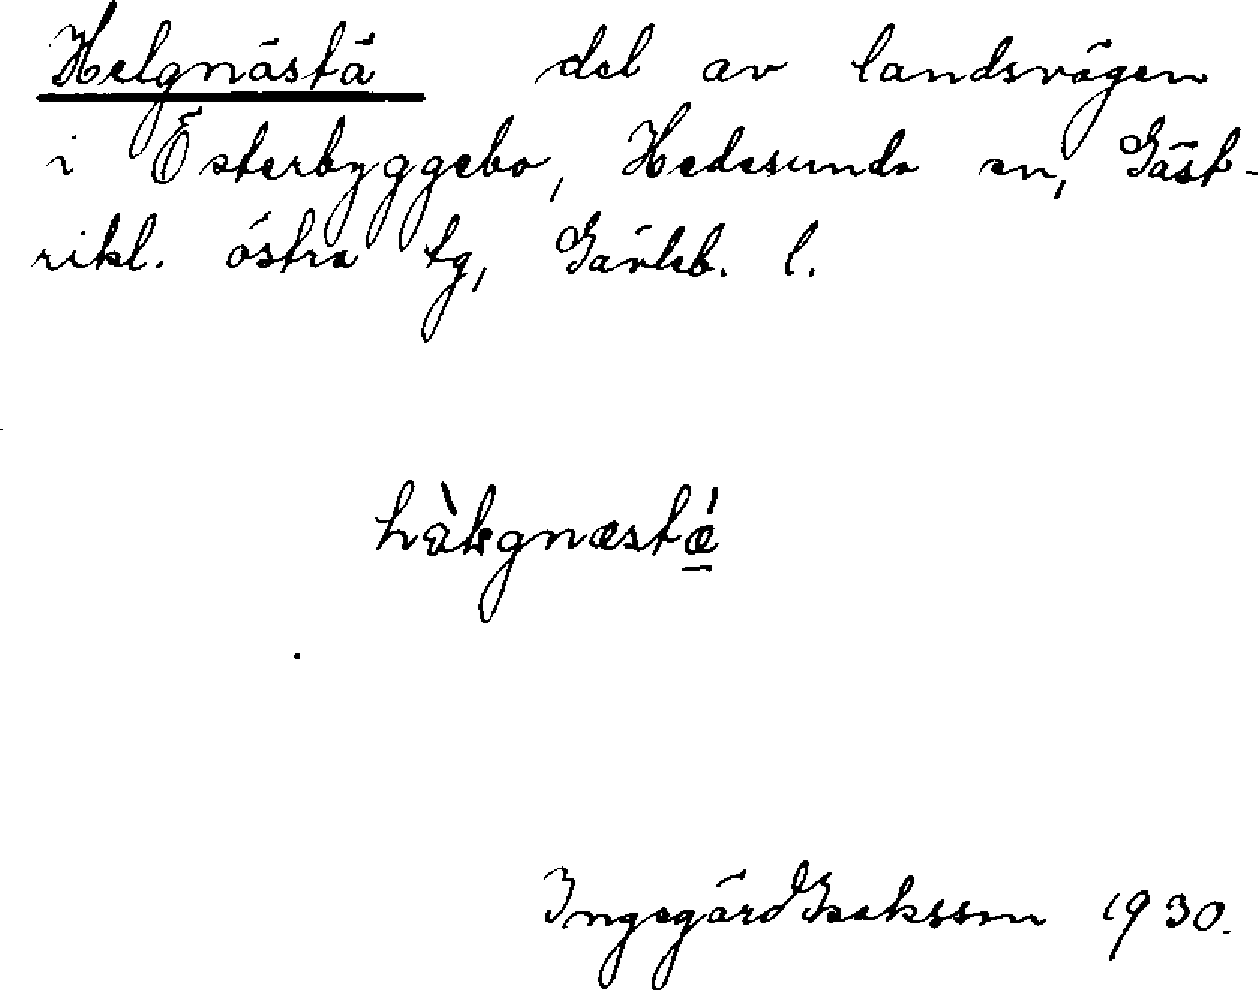 Helgnästä del av landsvägen
i Österbyggebo, Hedesunda sn, Gäst-
rikl. östra tg, Gävleb. l.
Ingegärd Isaksson 1930.